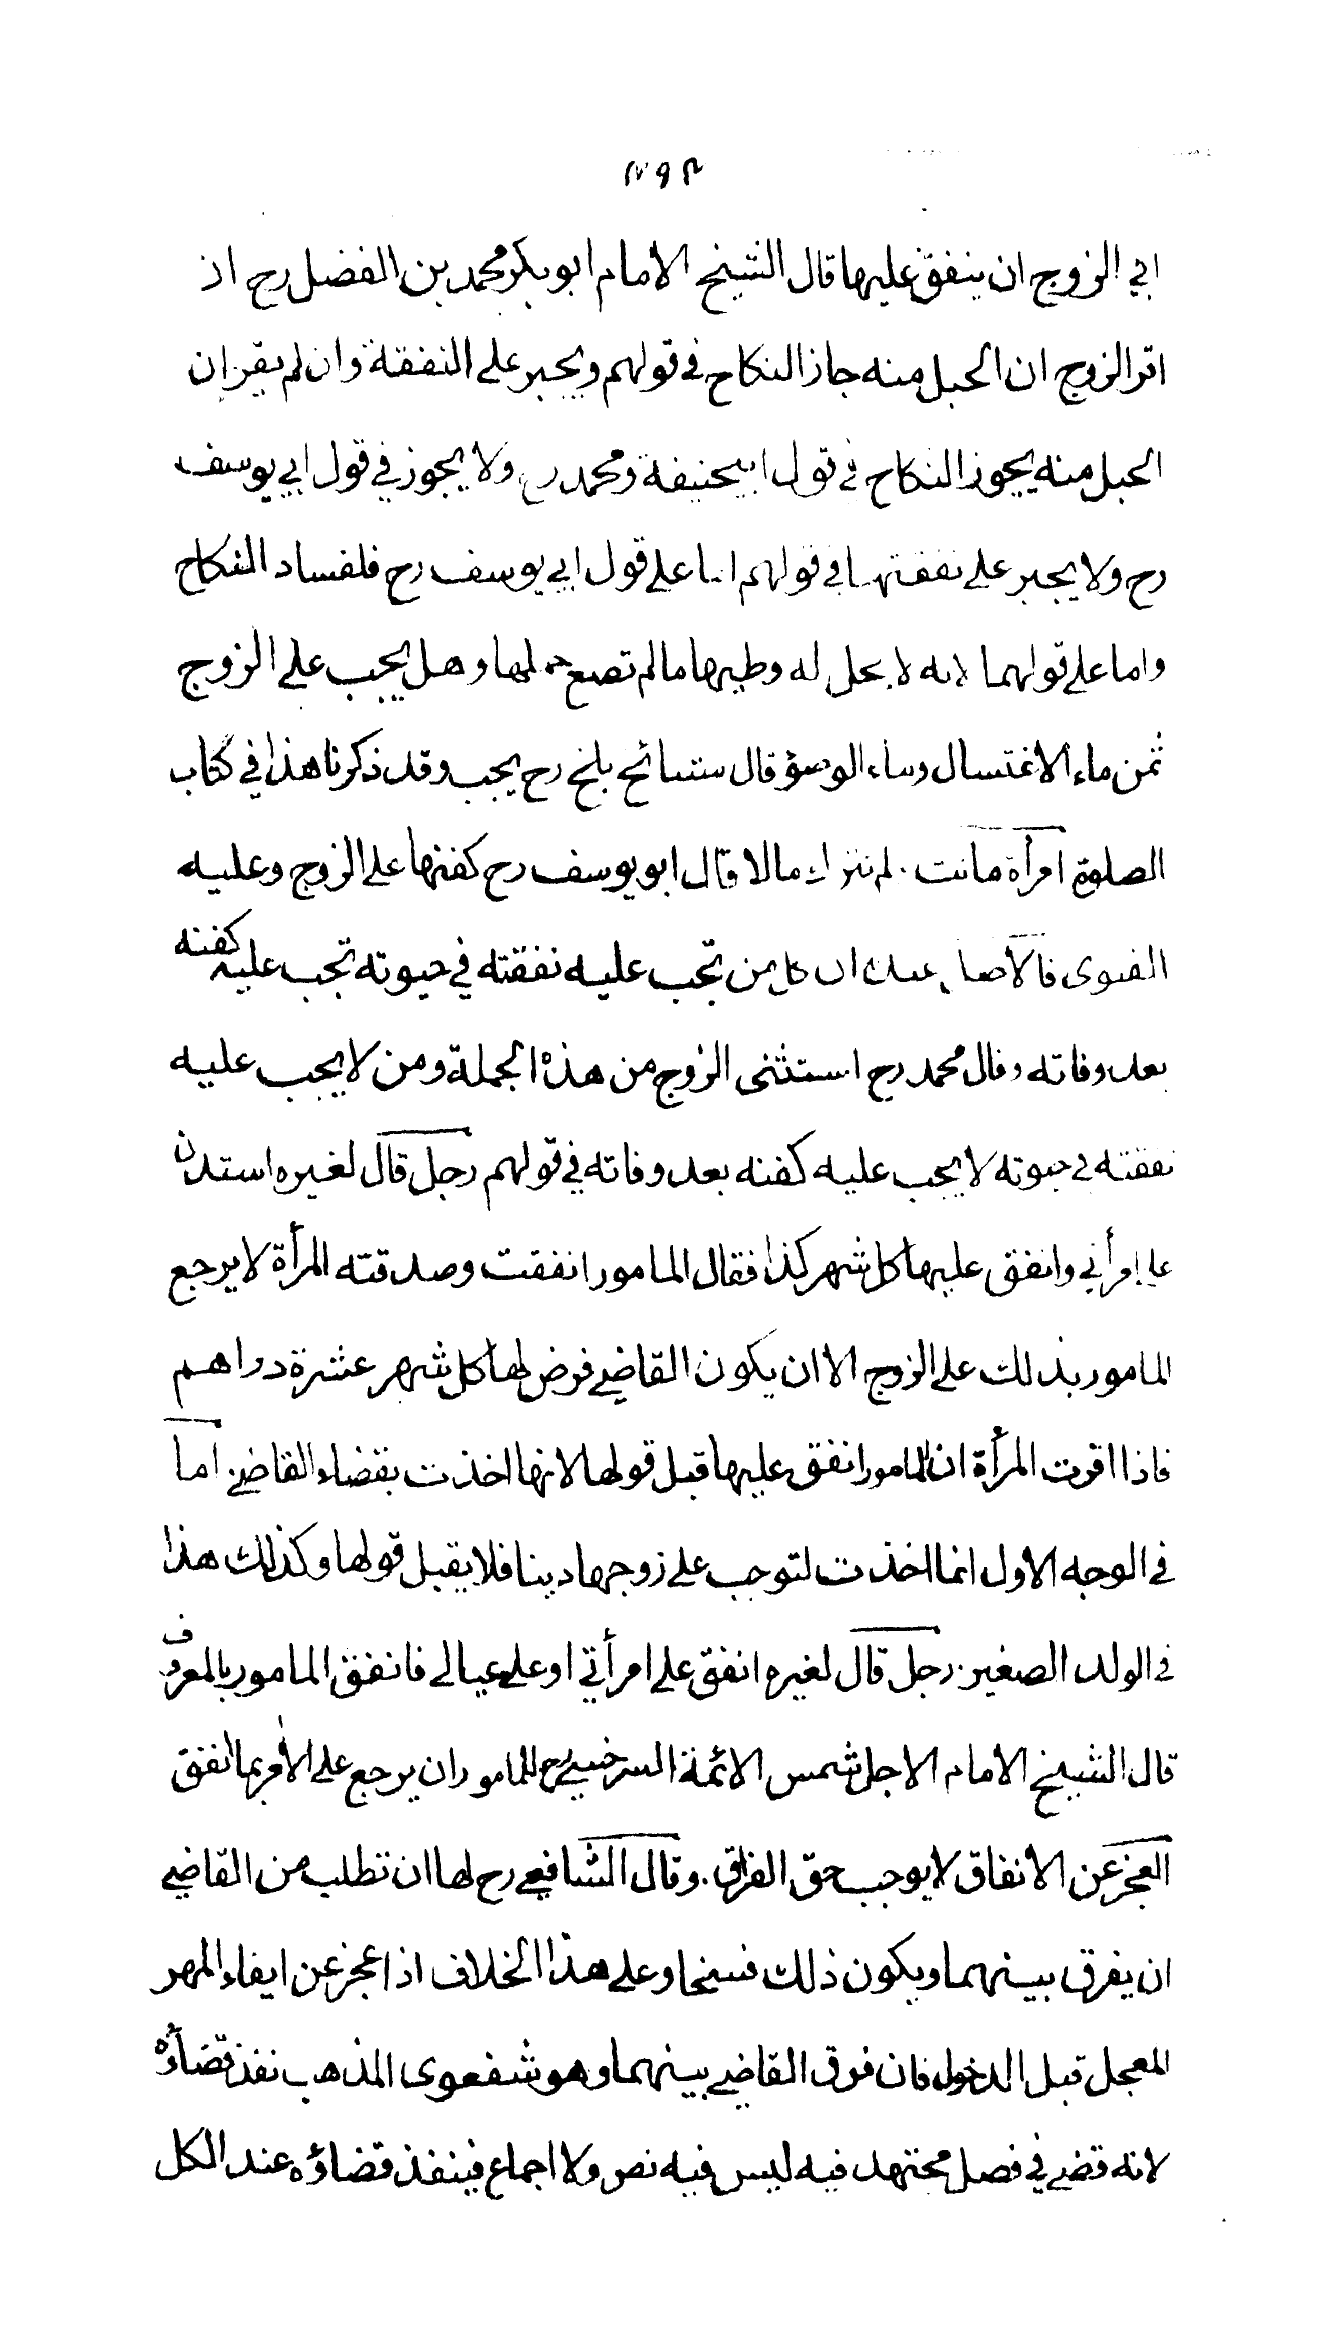 ابي الزوج ان ينفق عليها قال الشيخ الامام ابو بكر محمد بن الفضل رح ان
اقر الزوج ان الحبل منه جاز النكاح في قولهم ويجبر على النفقة وان لم يقر ان
الحبل منه يجوز النكاح في قول ابيحنيفة ومحمد رح ولا يجوز في قول ابي يوسف
رح ولا يجبر على نفقتها في قولهم اما على قول ابي يوسف رح فلفساد النكاح
واما على قولهما لانه لا يحل له وطيها مالم تضع حملها وهل يجب على الزوج
ثمن ماء الاغتسال وماء الوضؤ قال مشائخ بلخ رح يجب وقد ذكرنا هذا في كتاب
الصلوة امرأة ماتت لم تترك مالا قال ابو يوسف رح كفنها على الزوج وعليه
الفتوى فالاصل عنده ان كل من تجب عليه نفقته في حيوته تجب عليه كفنه
بعد وفاته وقال محمد رح استثنى الزوج من هذه الجملة ومن لا يجب عليه
نفقته في حيوته لا يجب عليه كفنه بعد وفاته في قولهم رجل قال لغيره استدن
على امرأتي وانفق عليها كل شهر كذا فقال المامور انفقت وصدقته المرأة لا يرجع
المامور بذلك على الزوج الا ان يكون القاضي فرض لها كل شهر عشرة دراهم
فاذا اقرت المرأة ان المامور انفق عليها قبل قولها لانها اخذت بقضاء القاضي اما
في الوجه الاول انما اخذت لتوجب على زوجها دينا فلا يقبل قولها وكذلك هذا
في الولد الصغير رجل قال لغيره انفق على امرأتي او على عيالي فانفق المامور بالمعروف
قال الشيخ الامام الاجل شمس الائمة السرخسي رح للمامور ان يرجع على الآمر بما انفق
العجز عن الانفاق لا يوجب حق الفراق وقال الشافعي رح لها ان تطلب من القاضي
ان يفرق بينهما ويكون ذلك فسخا وعلى هذا الخلاف اذا عجز عن ايفاء المهر
المعجل قبل الدخول فان فرق القاضي بينهما وهو شفعوى المذهب نفذ قضاؤه
لانه قضى في فصل مجتهد فيه ليس فيه نص ولا اجماع فينفذ قضاؤه عند الكل